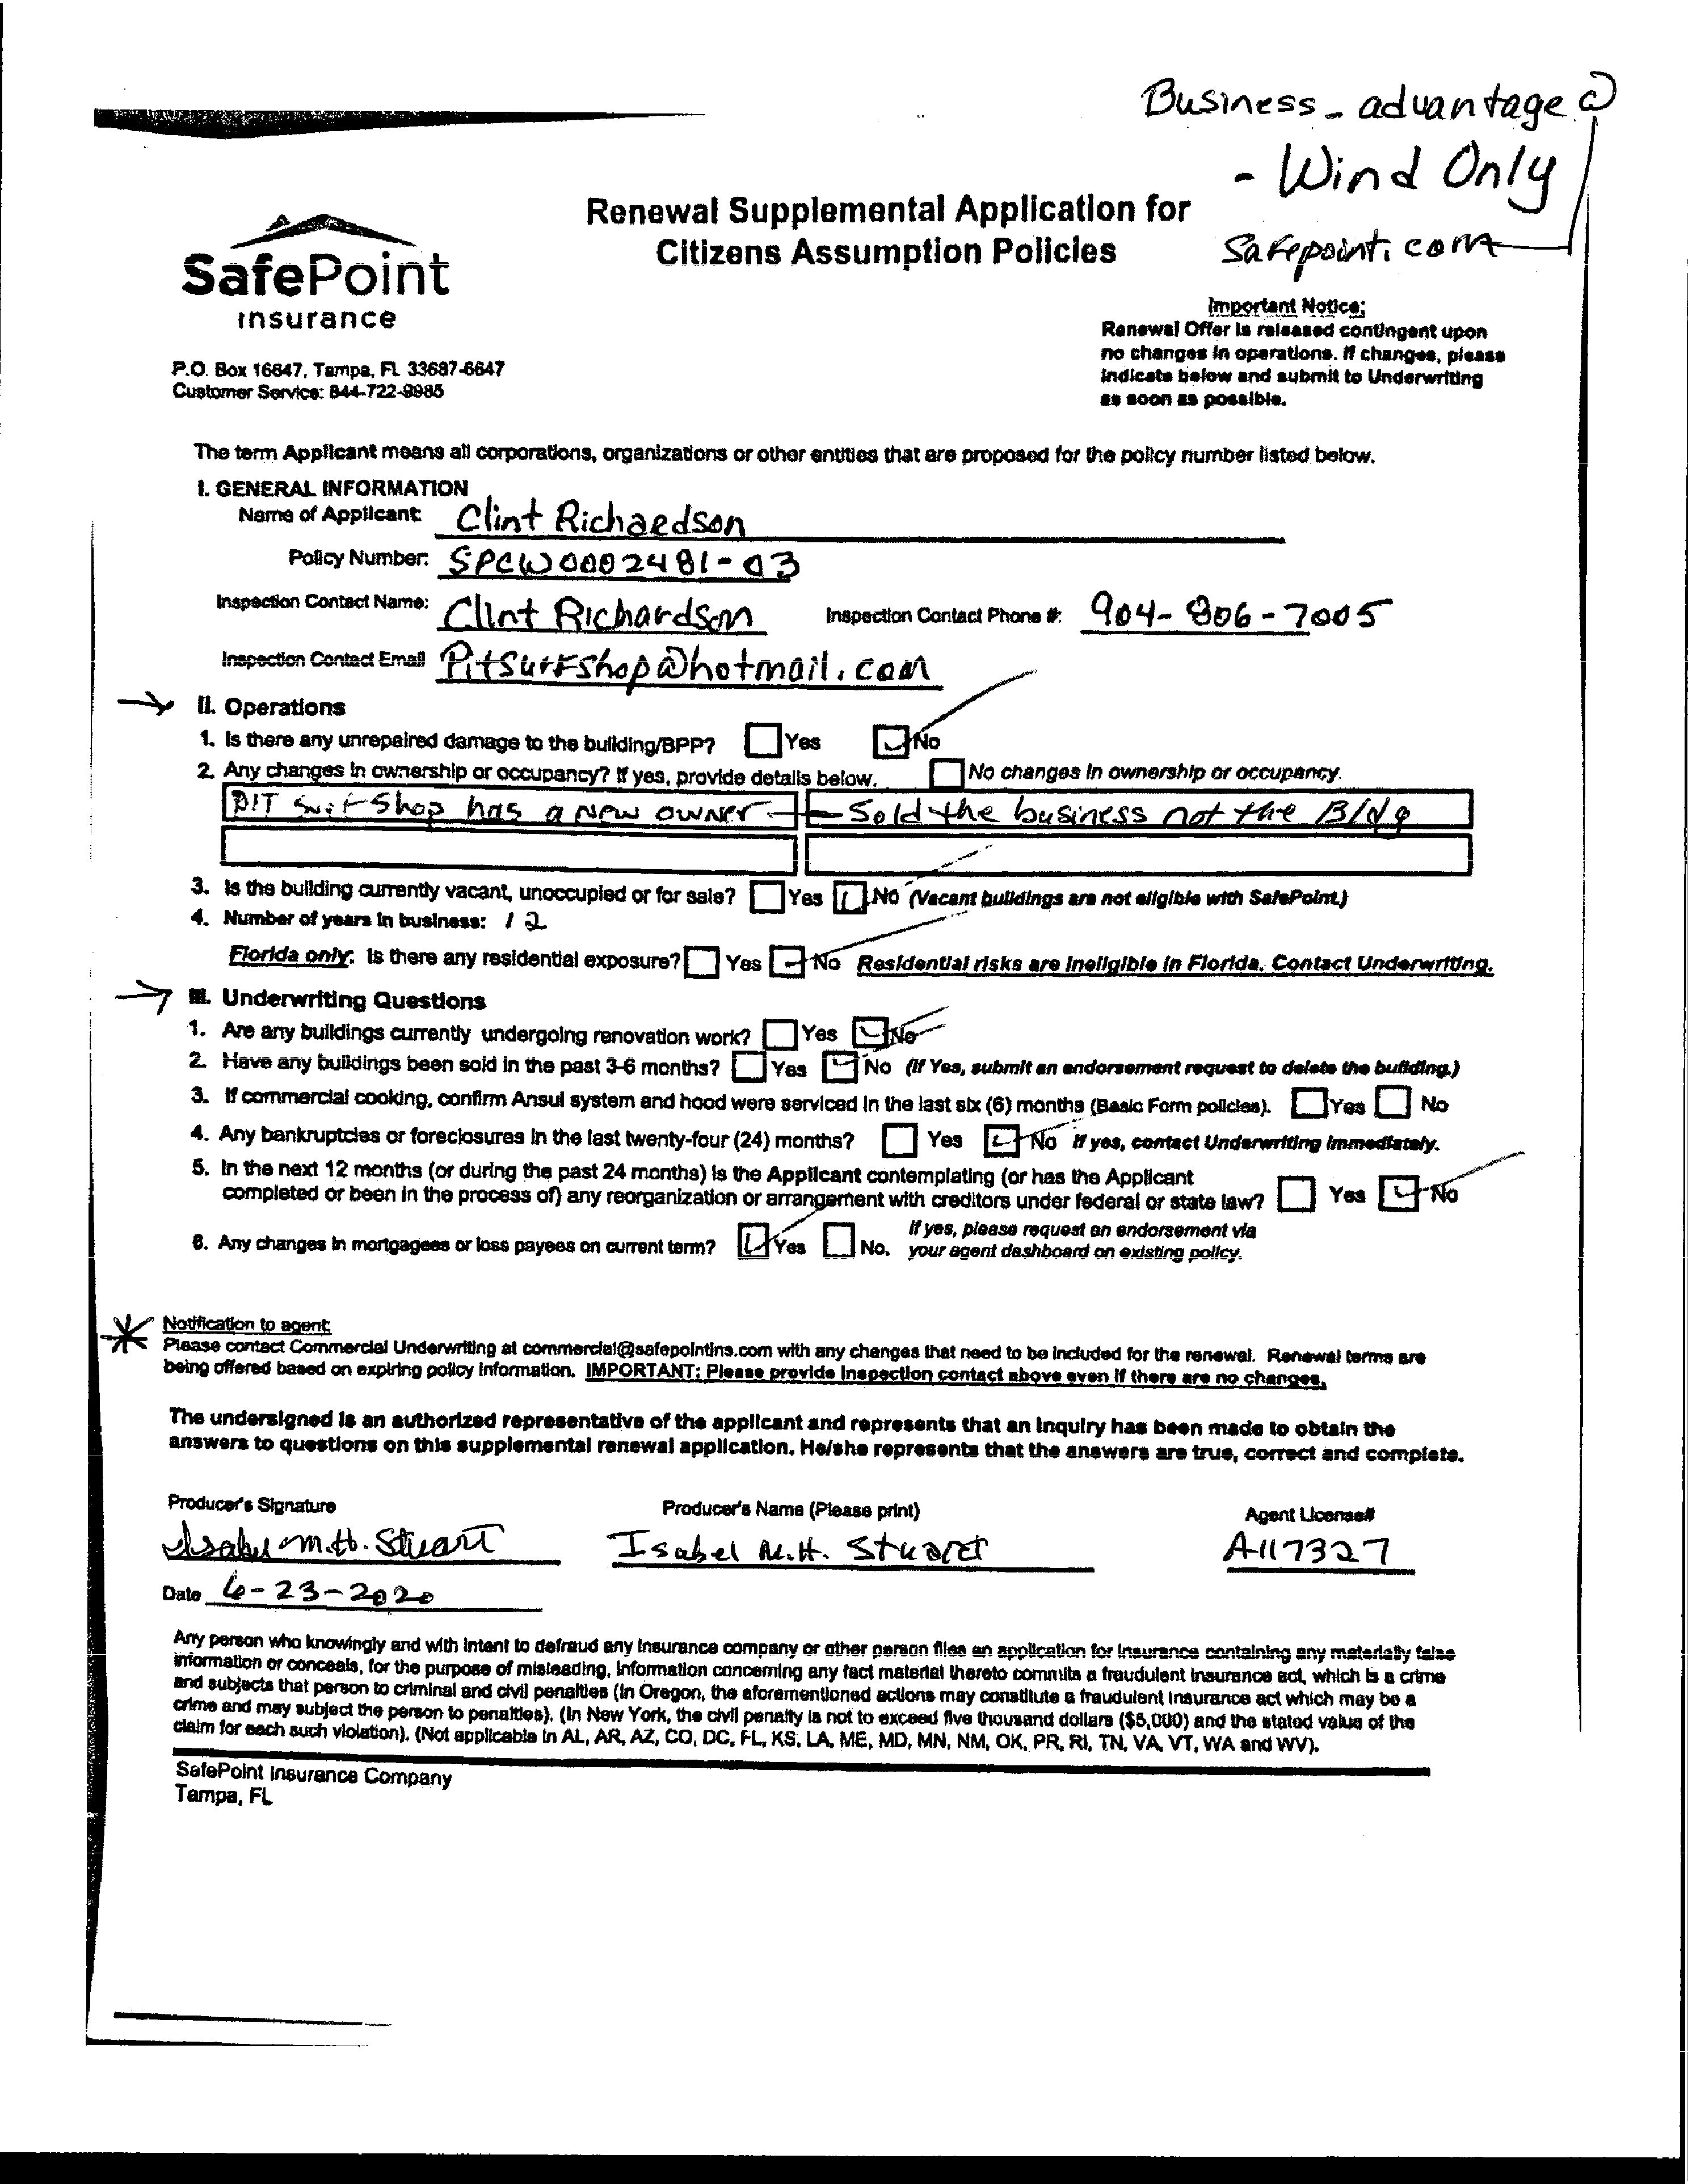 Business_advantage@
- Wind Only
Safepoint.com
SafePoint
Insurance
Renewal Supplemental Application for
Citizens Assumption Policies
Important Notice:
Renewal Offer is released contingent upon
no changes in operations. If changes, please
indicate below and submit to Underwriting
as soon as possible.
P.O. Box 16647, Tampa, FL 33687-6647
Customer Service: 844-722-9985
The term Applicant means all corporations, organizations or other entities that are proposed for the policy number listed below.
I. GENERAL INFORMATION
Name of Applicant: Clint Richardson
Policy Number: SPCW0002481-03
Inspection Contact Name: Clint Richardson Inspection Contact Phone #: 904-806-7005
Inspection Contact Email Pitsurfshop@hotmail.com
II. Operations
1. Is there any unrepaired damage to the building/BPP? Yes No
2. Any changes in ownership or occupancy? If yes, provide details below. No changes in ownership or occupancy.
PIT Surf Shop has a New owner - Sold the business not the Bldg
3. Is the building currently vacant, unoccupied or for sale? Yes No (Vacant buildings are not eligible with SafePoint.)
4. Number of years in business: 12
Florida only: Is there any residential exposure? Yes No Residential risks are ineligible in Florida. Contact Underwriting.
III. Underwriting Questions
1. Are any buildings currently undergoing renovation work? Yes No
2. Have any buildings been sold in the past 3-6 months? Yes No (If Yes, submit an endorsement request to delete the building.)
3. If commercial cooking, confirm Ansul system and hood were serviced in the last six (6) months (Basic Form policies). Yes No
4. Any bankruptcies or foreclosures in the last twenty-four (24) months? Yes No If yes, contact Underwriting immediately.
5. In the next 12 months (or during the past 24 months) is the Applicant contemplating (or has the Applicant
completed or been in the process of) any reorganization or arrangement with creditors under federal or state law? Yes No
6. Any changes in mortgagees or loss payees on current term? Yes No. If yes, please request an endorsement via
your agent dashboard on existing policy.
Notification to agent:
Please contact Commercial Underwriting at commercial@safepointins.com with any changes that need to be included for the renewal. Renewal terms are
being offered based on expiring policy information. IMPORTANT: Please provide Inspection contact above even if there are no changes.
The undersigned is an authorized representative of the applicant and represents that an inquiry has been made to obtain the
answers to questions on this supplemental renewal application. He/she represents that the answers are true, correct and complete.
Producer's Signature Producer's Name (Please print) Agent License#
Isabel M.H. Stuart Isabel M.H. Stuart A117327
Date 6-23-2020
Any person who knowingly and with intent to defraud any insurance company or other person files an application for insurance containing any materially false
information or conceals, for the purpose of misleading, information concerning any fact material thereto commits a fraudulent insurance act, which is a crime
and subjects that person to criminal and civil penalties (In Oregon, the aforementioned actions may constitute a fraudulent insurance act which may be a
crime and may subject the person to penalties). (In New York, the civil penalty is not to exceed five thousand dollars ($5,000) and the stated value of the
claim for each such violation). (Not applicable in AL, AR, AZ, CO, DC, FL, KS, LA, ME, MD, MN, NM, OK, PR, RI, TN, VA, VT, WA and WV).
SafePoint Insurance Company
Tampa, FL